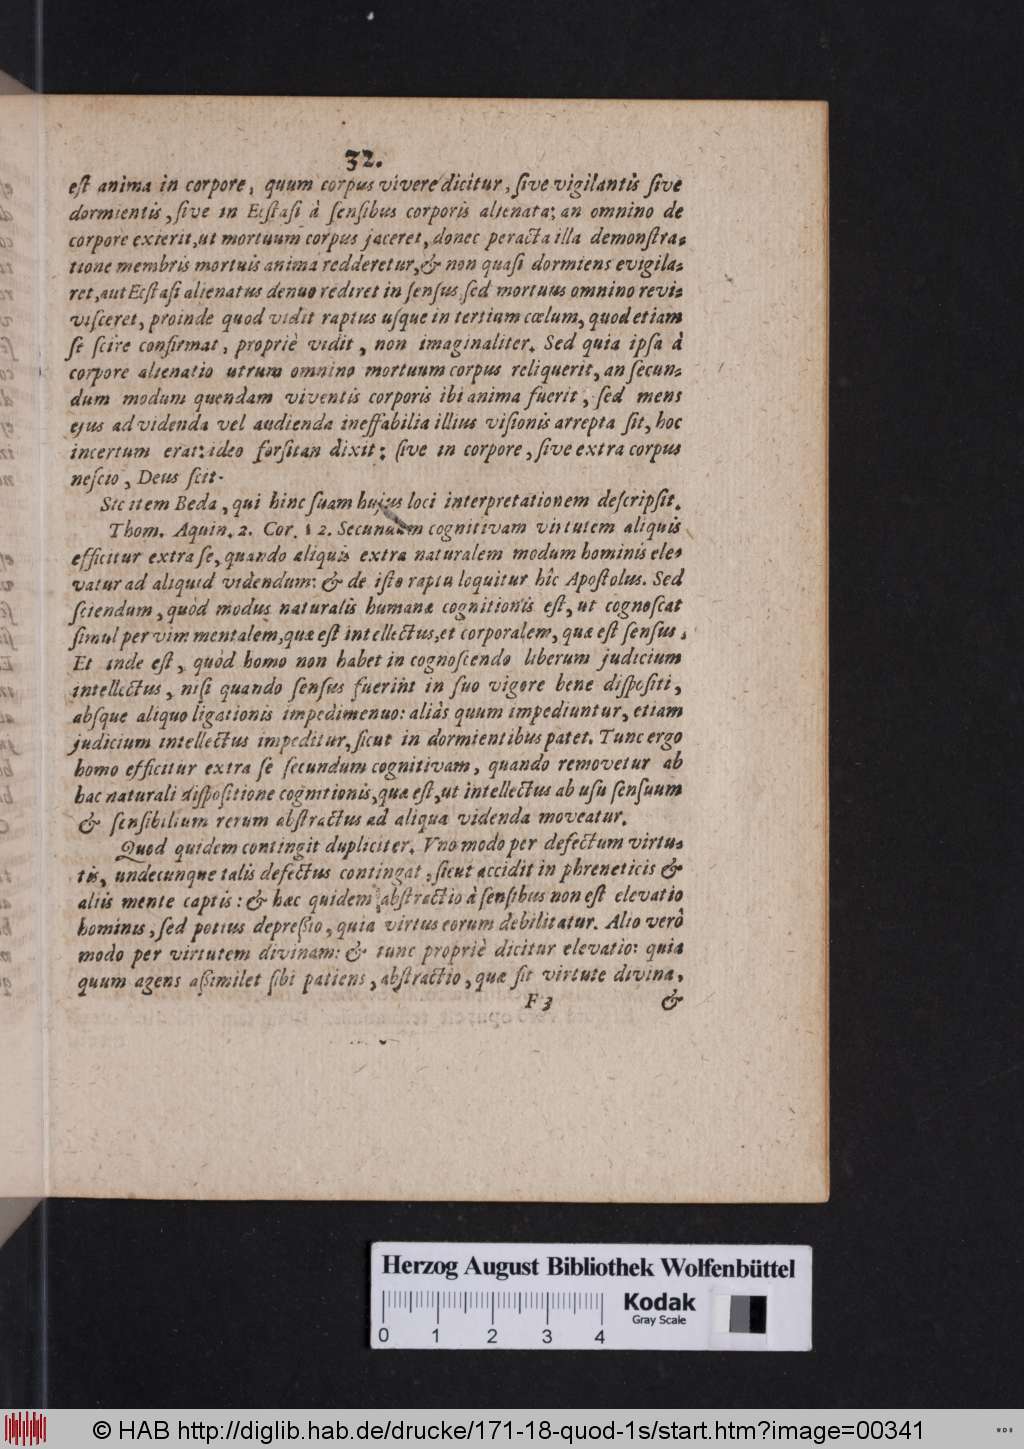 32.
eſt anima in corpore, quum corpus vivere dicitur, ſive vigilantis ſive
dormientis, ſive in Ecſtaſi à ſenſibus corporis alienata; an omnino de
corpore exierit, ut mortuum corpus jaceret, donec peracta illa demonſtra-
tione membris mortuis anima redderetur, & non quaſi dormiens evigila-
ret, aut Ecſtaſi alienatus denuo rediret in ſenſus ſed mortuus omnino revi-
viſceret, proinde quod vidit raptus uſque in tertium cœlum, quod etiam
ſe ſcire confirmat, propriè vidit, non imaginaliter. Sed quia ipſa à
corpore alienatio utrum omnino mortuum corpus reliquerit, an ſecun-
dum modum quendam viventis corporis ibi anima fuerit, ſed mens
ejus ad videnda vel audienda ineffabilia illius viſionis arrepta ſit, hoc
incertum erat: ideo forſitan dixit; ſive in corpore, ſive extra corpus
neſcio, Deus ſcit.
Sic item Beda, qui hinc ſuam hujus loci interpretationem deſcripſit.
Thom. Aquin. 2. Cor. 12. Secundum cognitivam virtutem aliquis
efficitur extra ſe, quando aliquis extra naturalem modum hominis ele-
vatur ad aliquid videndum: & de iſto raptu loquitur hîc Apoſtolus. Sed
ſciendum, quòd modus naturalis humanæ cognitionis eſt, ut cognoſcat
ſimul per vim mentalem, quæ eſt intellectus, et corporalem, quæ eſt ſenſus.
Et inde eſt, quòd homo non habet in cognoſcendo liberum judicium
intellectus, niſi quando ſenſus fuerint in ſuo vigore bene diſpoſiti,
abſque aliquo ligationis impedimenuo: aliàs quum impediuntur, etiam
judicium intellectus impeditur, ſicut in dormientibus patet. Tunc ergo
homo efficitur extra ſe ſecundum cognitivam, quando removetur ab
hac naturali diſpoſitione cognitionis, quæ eſt, ut intellectus ab uſu ſenſuum
& ſenſibilium rerum abſtractus ad aliqua videnda moveatur.
Quod quidem contingit dupliciter. Vno modo per defectum virtu-
tis, undecunque talis defectus contingat, ſicut accidit in phreneticis &
aliis mente captis: & hæc quidem abſtractio à ſenſibus non eſt elevatio
hominis, ſed potius depreſſio, quia virtus eorum debilitatur. Alio verò
modo per virtutem divinam: & tunc propriè dicitur elevatio: quia
quum agens aſſimilet ſibi patiens, abſtractio, quæ fit virtute divina,
F 3 &
Herzog August Bibliothek Wolfenbüttel
0 1 2 3 4
Kodak
Gray Scale
© HAB http://diglib.hab.de/drucke/171-18-quod-1s/start.htm?image=00341